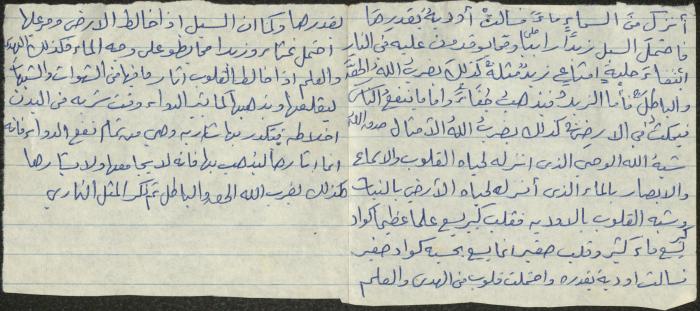 أنزل من السماء ماء فسالت أودية بقدرها
فاحتمل السيل زبدا رابيا ومما يوقدون عليه في النار
ابتغاء حلية أو متاع زبد مثله كذلك يضرب الله الحق
والباطل فأما الزبد فيذهب جفاء وأما ما ينفع الناس
فيمكث في الارض كذلك يضرب الله الأمثال صدق الله
شبه الله الوحي الذي انزله لحياه القلوب والاسماع
والابصار بالماء الذي أنزله لحياه الأرض بالنبات
وشبه القلوب بالاوديه فقلب كبير يسع علما عظيما كواد
كبير يسع ماء كثير وقلب صغير انما يسع بحسبه كواد صغير
فسالت اودية بقدره واحتملت قلوب من الهدى والعلم
بقدرها وكما ان السيل اذا خالط الارض ومر عليها
احتمل غثاء وزبدا مما يطفو على وجه الماء فكذلك الهدى
والعلم اذا خالط القلوب اثار ما فيها من الشهوات والشبهات
ليقلعها ويذهبها كما يثير الدواء وقت شربه من البدن
اخلاطه فيتكدر بها شاربه وهي من تمام نفع الدواء فانه
انما اثارها ليذهب بها فانه لا يجامعها ولا يشاركها
فكذلك يضرب الله الحق والباطل ثم ذكر المثل الناري